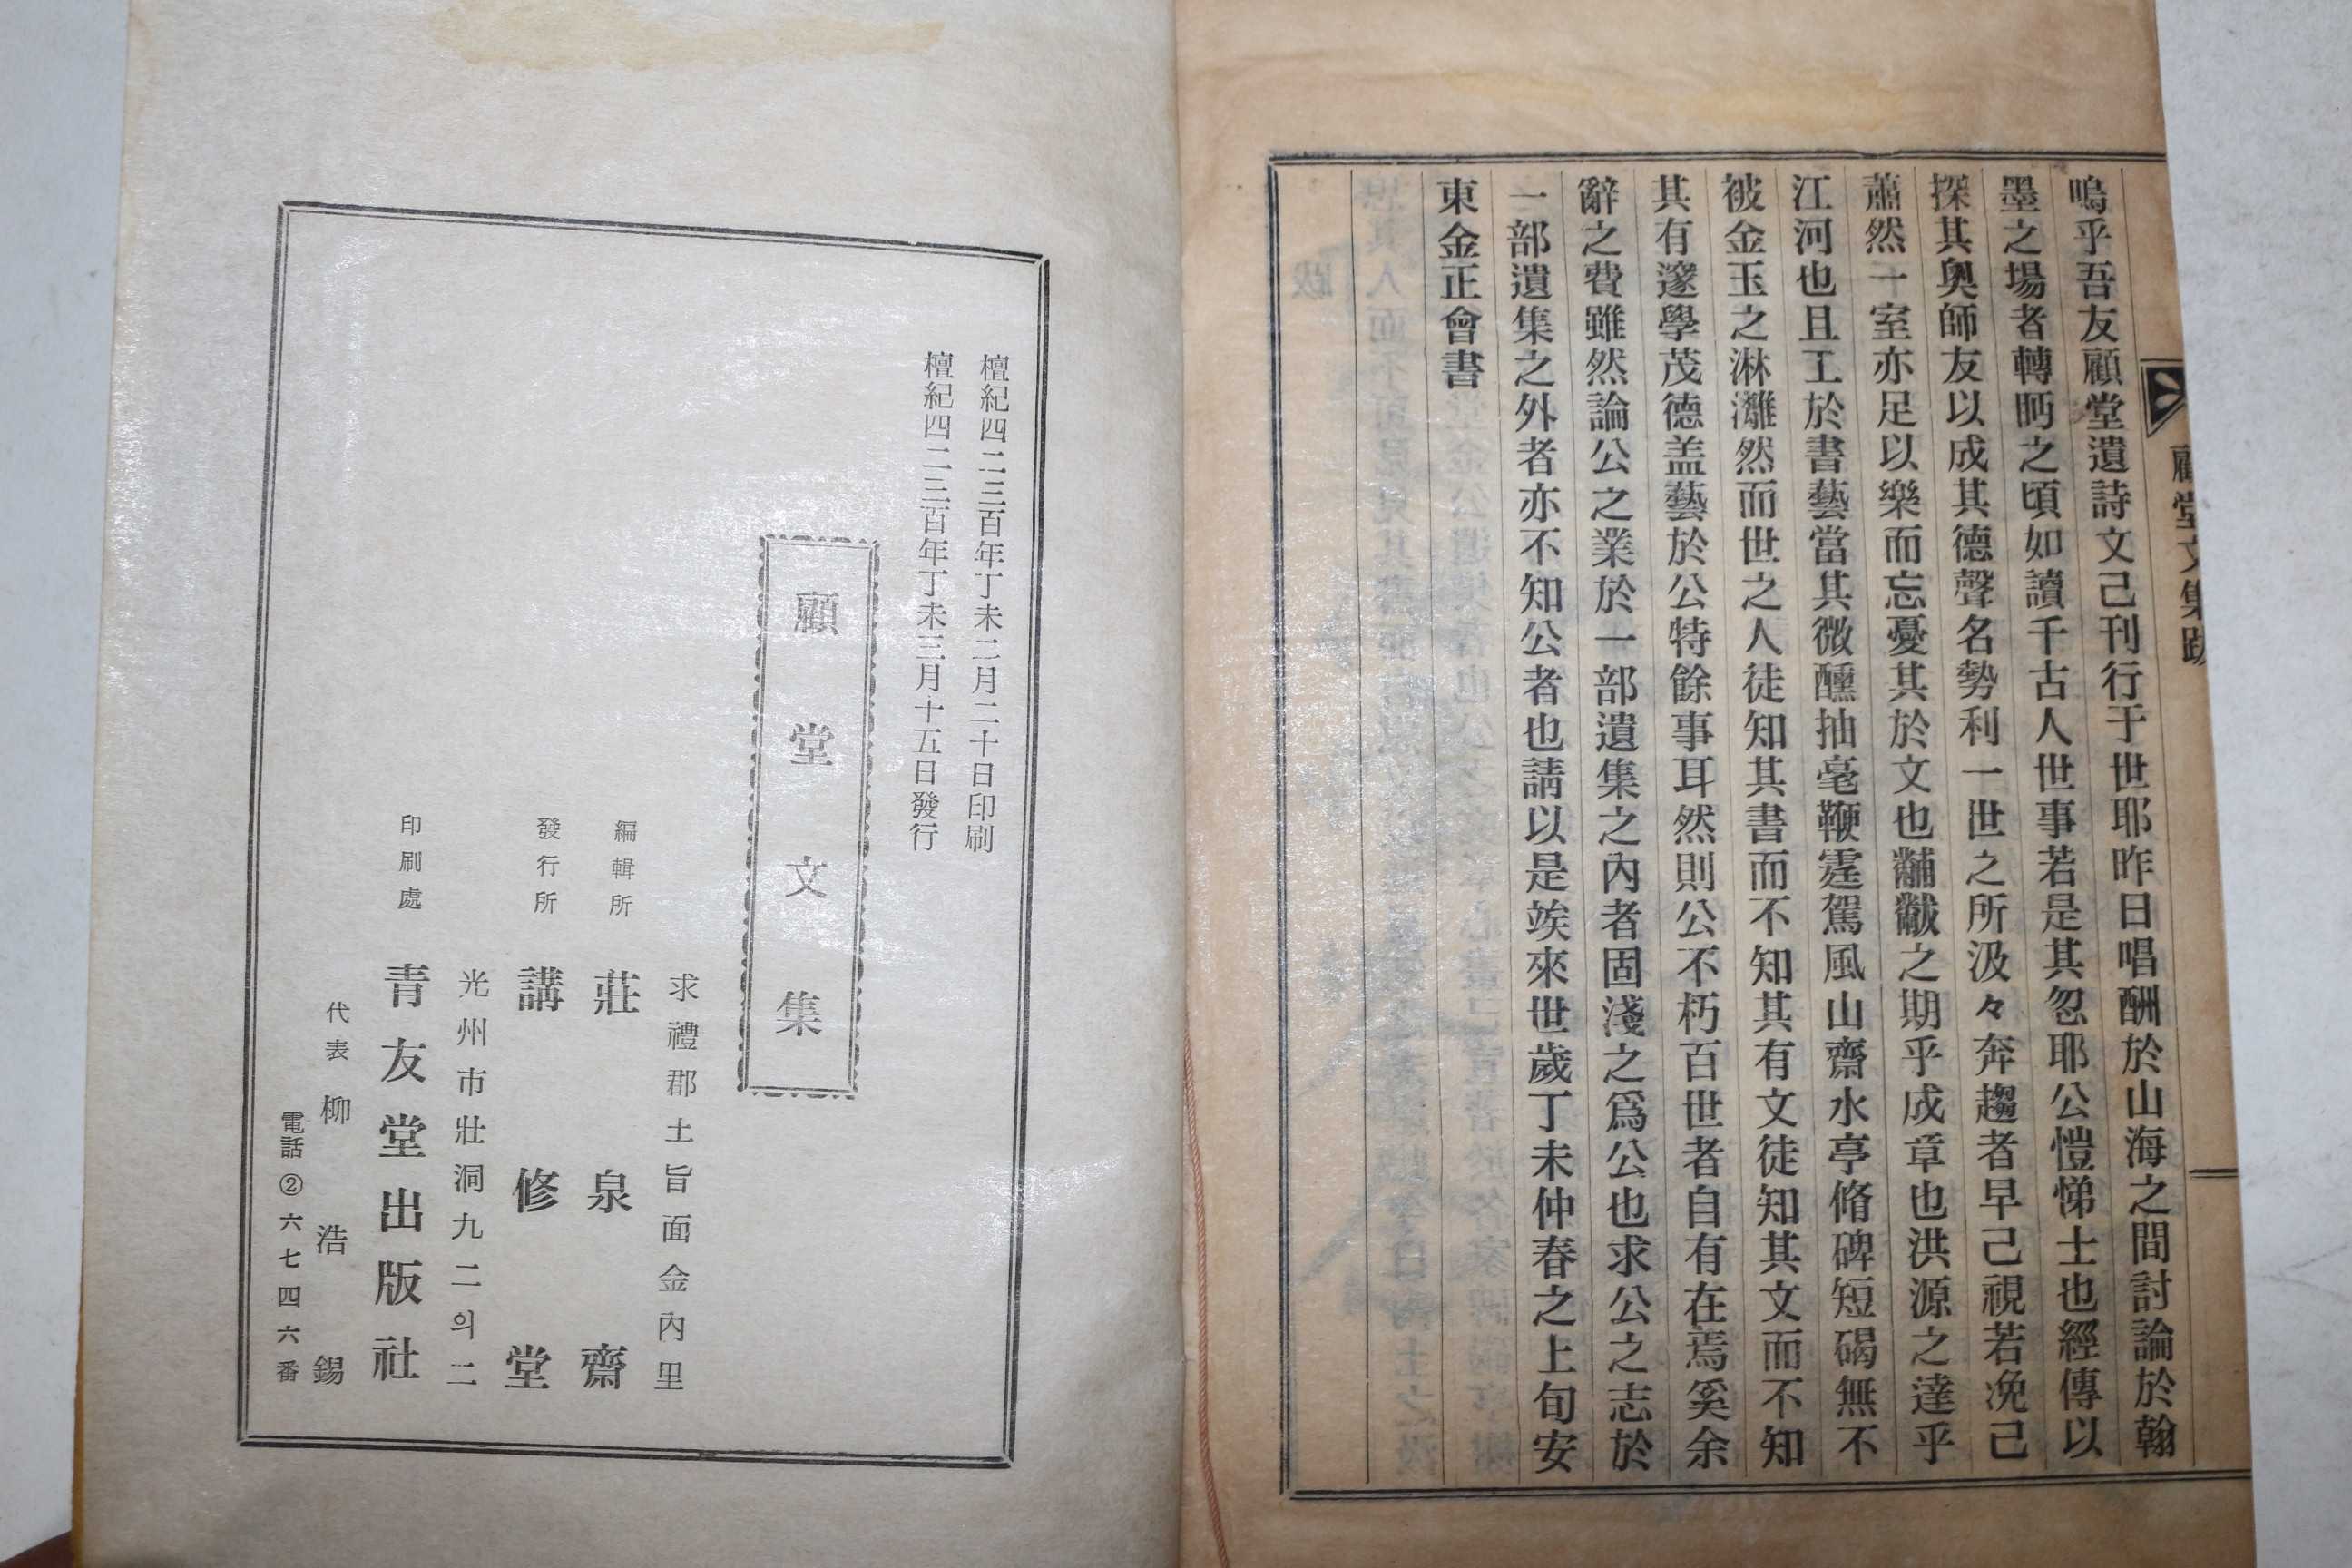 顧堂文集跋
嗚乎吾友顧堂遺詩文己刊行于世耶昨日唱酬於山海之間討論於翰
墨之場者轉眄之頃如讀千古人世事若是其忽耶公愷悌士也經傳以
探其奧師友以成其德聲名勢利一世之所汲々奔趨者早己視若凂己
蕭然一室亦足以樂而忘憂其於文也黼黻之期乎成章也洪源之達乎
江河也且工於書藝當其微醺抽毫鞭霆駕風山齋水亭脩碑短碣無不
被金玉之淋灕然而世之人徒知其書而不知其有文徒知其文而不知
其有邃學茂德盖藝於公特餘事耳然則公不朽百世者自有在焉奚余
辭之費雖然論公之業於一部遺集之內者固淺之爲公也求公之志於
一部遺集之外者亦不知公者也請以是竢來世歲丁未仲春之上旬安
東金正會書
檀紀四二三百年丁未二月二十日印刷
檀紀四二三百年丁未三月十五日發行
顧堂文集
求禮郡土旨面金內里
編輯所 莊泉齋
發行所 講修堂
光州市壯洞九二의二
印刷處 青友堂出版社
代表 柳浩錫
電話②六七四六番